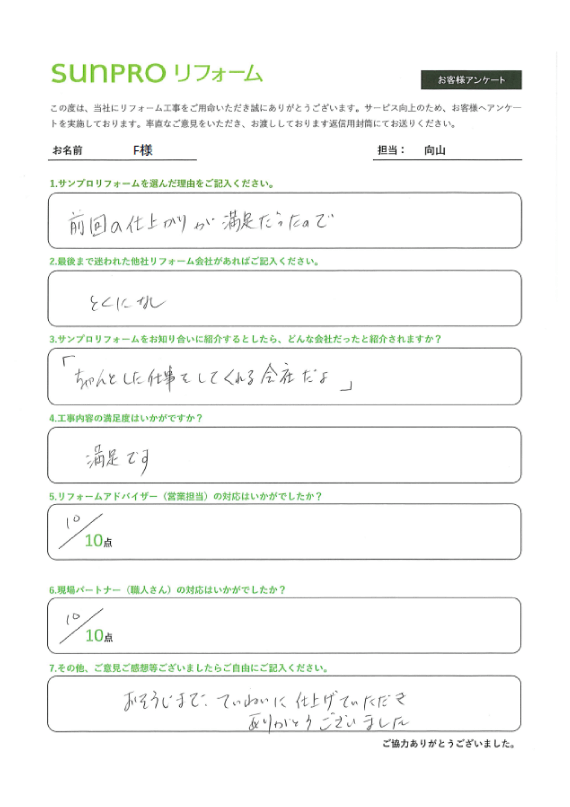 SUNPRO リフォーム
お客様アンケート
この度は、当社にリフォーム工事をご用命いただき誠にありがとうございます。サービス向上のため、お客様へアンケー
トを実施しております。率直なご意見をいただき、お渡ししております返信用封筒にてお送りください。
お名前 F様 担当： 向山
1.サンプロリフォームを選んだ理由をご記入ください。
前回の仕上がりが満足だったので
2.最後まで迷われた他社リフォーム会社があればご記入ください。
とくになし
3.サンプロリフォームをお知り合いに紹介するとしたら、どんな会社だったと紹介されますか？
「ちゃんとした仕事をしてくれる会社だよ」
4.工事内容の満足度はいかがですか？
満足です
5.リフォームアドバイザー（営業担当）の対応はいかがでしたか？
10/10点
6.現場パートナー（職人さん）の対応はいかがでしたか？
10/10点
7.その他、ご意見ご感想等ございましたらご自由にご記入ください。
おそうじまで、ていねいに仕上げていただき
ありがとうございました
ご協力ありがとうございました。